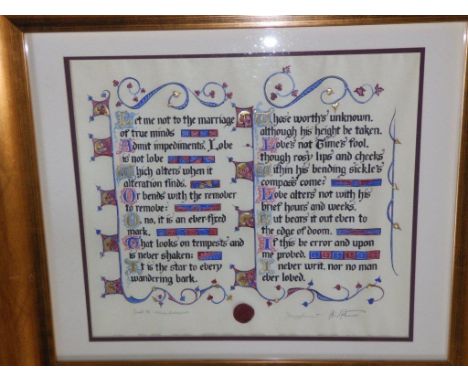 Let me not to the marriage
of true minds
Admit impediments. Love
is not lobe
Which alters when it
alteration finds,
Or bends with the remover
to remobe:
O, no, it is an eber-fixed
mark,
That looks on tempests and
is never shaken;
It is the star to every
wandering bark.
Whose worth's unknown,
although his height be taken.
Lobe's not Time's fool,
though rosy lips and cheeks
Within his bending sickle's
compass come;
Lobe alters not with his
brief hours and weeks,
But bears it out eben to
the edge of doom.
If this be error and upon
me probed,
I never writ, nor no man
eber lobed.